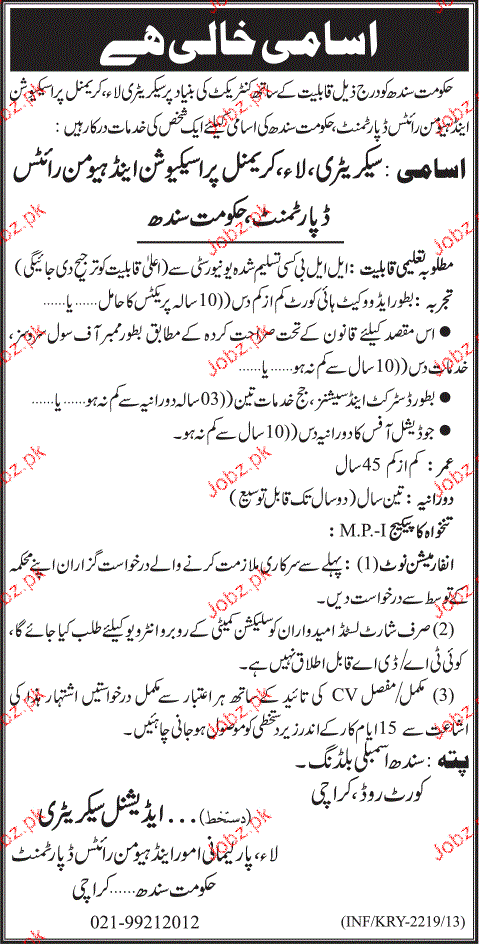 اسامی خالی ھے
حکومت سندھ کو درج ذیل قابلیت کے ساتھ کنٹریکٹ کی بنیاد پر سیکریٹری لاء، کریمنل پراسیکیوشن
اینڈ ہیومن رائٹس ڈپارٹمنٹ، حکومت سندھ کی اسامی کیلئے ایک شخص کی خدمات درکار ہیں:
اسامی : سیکریٹری، لاء، کریمنل پراسیکیوشن اینڈ ہیومن رائٹس
ڈپارٹمنٹ، حکومت سندھ
مطلوبہ تعلیمی قابلیت : ایل ایل بی کسی تسلیم شدہ یونیورسٹی سے (اعلیٰ قابلیت کو ترجیح دی جائیگی)
تجربہ : بطور ایڈووکیٹ ہائی کورٹ کم از کم دس ((10 سالہ پریکٹس کا حامل ...... یا ......
● اس مقصد کیلئے قانون کے تحت صراحت کردہ کے مطابق بطور ممبر آف سول سروسز،
خدمات دس ((10 سال سے کم نہ ہو ...... یا ......
● بطور ڈسٹرکٹ اینڈ سیشنز، جج خدمات تین ((03 سالہ دورانیہ سے کم نہ ہو ...... یا ......
● جوڈیشل آفس کا دورانیہ دس ((10 سال سے کم نہ ہو۔
عمر: کم از کم 45 سال
دورانیہ : تین سال (دو سال تک قابل توسیع)
تنخواہ کا پیکیج M.P.-I :
انفارمیشن نوٹ (1) : پہلے سے سرکاری ملازمت کرنے والے درخواست گزاران اپنے محکمہ
کے توسط سے درخواست دیں۔
(2) صرف شارٹ لسٹڈ امیدواران کو سلیکشن کمیٹی کے روبرو انٹرویو کیلئے طلب کیا جائے گا،
کوئی ٹی اے/ ڈی اے قابل اطلاق نہیں ہے۔
(3) مکمل/ مفصل CV کی تائید کے ساتھ ہر اعتبار سے مکمل درخواستیں اشتہار ھذا کی
اشاعت سے 15 ایام کار کے اندر زیر دستخطی کو موصول ہو جانی چاہئیں۔
پتہ : سندھ اسمبلی بلڈنگ۔
کورٹ روڈ، کراچی
(دستخط) ... ایڈیشنل سیکریٹری
لاء، پارلیمانی امور اینڈ ہیومن رائٹس ڈپارٹمنٹ
حکومت سندھ ...... کراچی
021-99212012
(INF/KRY-2219/13)
Jobz.pk